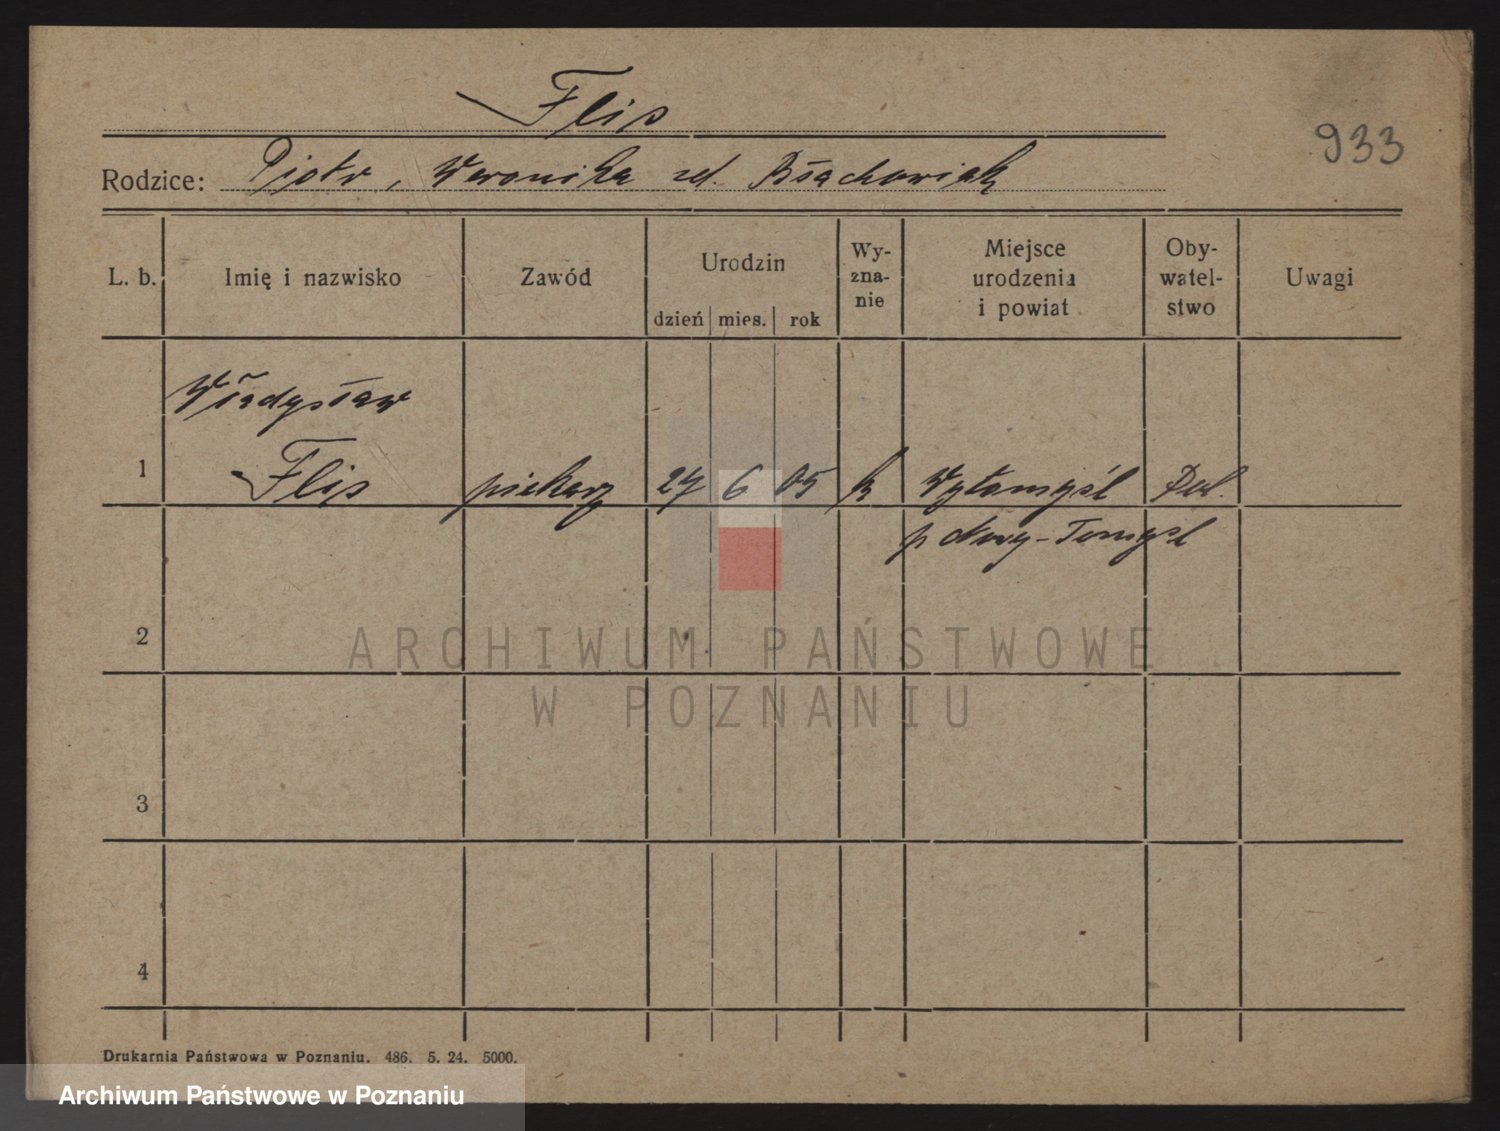 Flis
933
Rodzice: Piotr, Weronika zd. Błachowiak
L. b. Imię i nazwisko Zawód Urodzin dzień mies. rok Wy-zna-nie Miejsce urodzenia i powiat Oby-watel-stwo Uwagi
Władysław
1 Flis piekarz 27 6 05 k Wytomyśl Pol.
p Nowy-Tomyśl
2
ARCHIWUM PAŃSTWOWE
W POZNANIU
3
4
Drukarnia Państwowa w Poznaniu. 486. 5. 24. 5000.
Archiwum Państwowe w Poznaniu